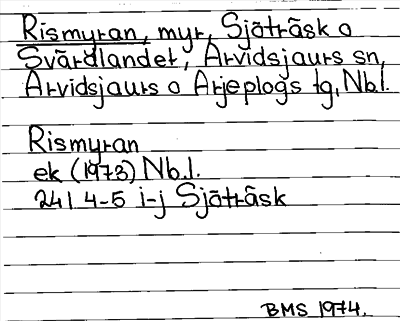 Rismyran, myr, Sjöträsk o
Svärdlandet, Arvidsjaurs sn,
Arvidsjaurs o Arjeplogs tg, Nb.l.
Rismyran
ek (1973) Nb.l.
24I 4-5 i-j Sjöträsk
BMS 1974.